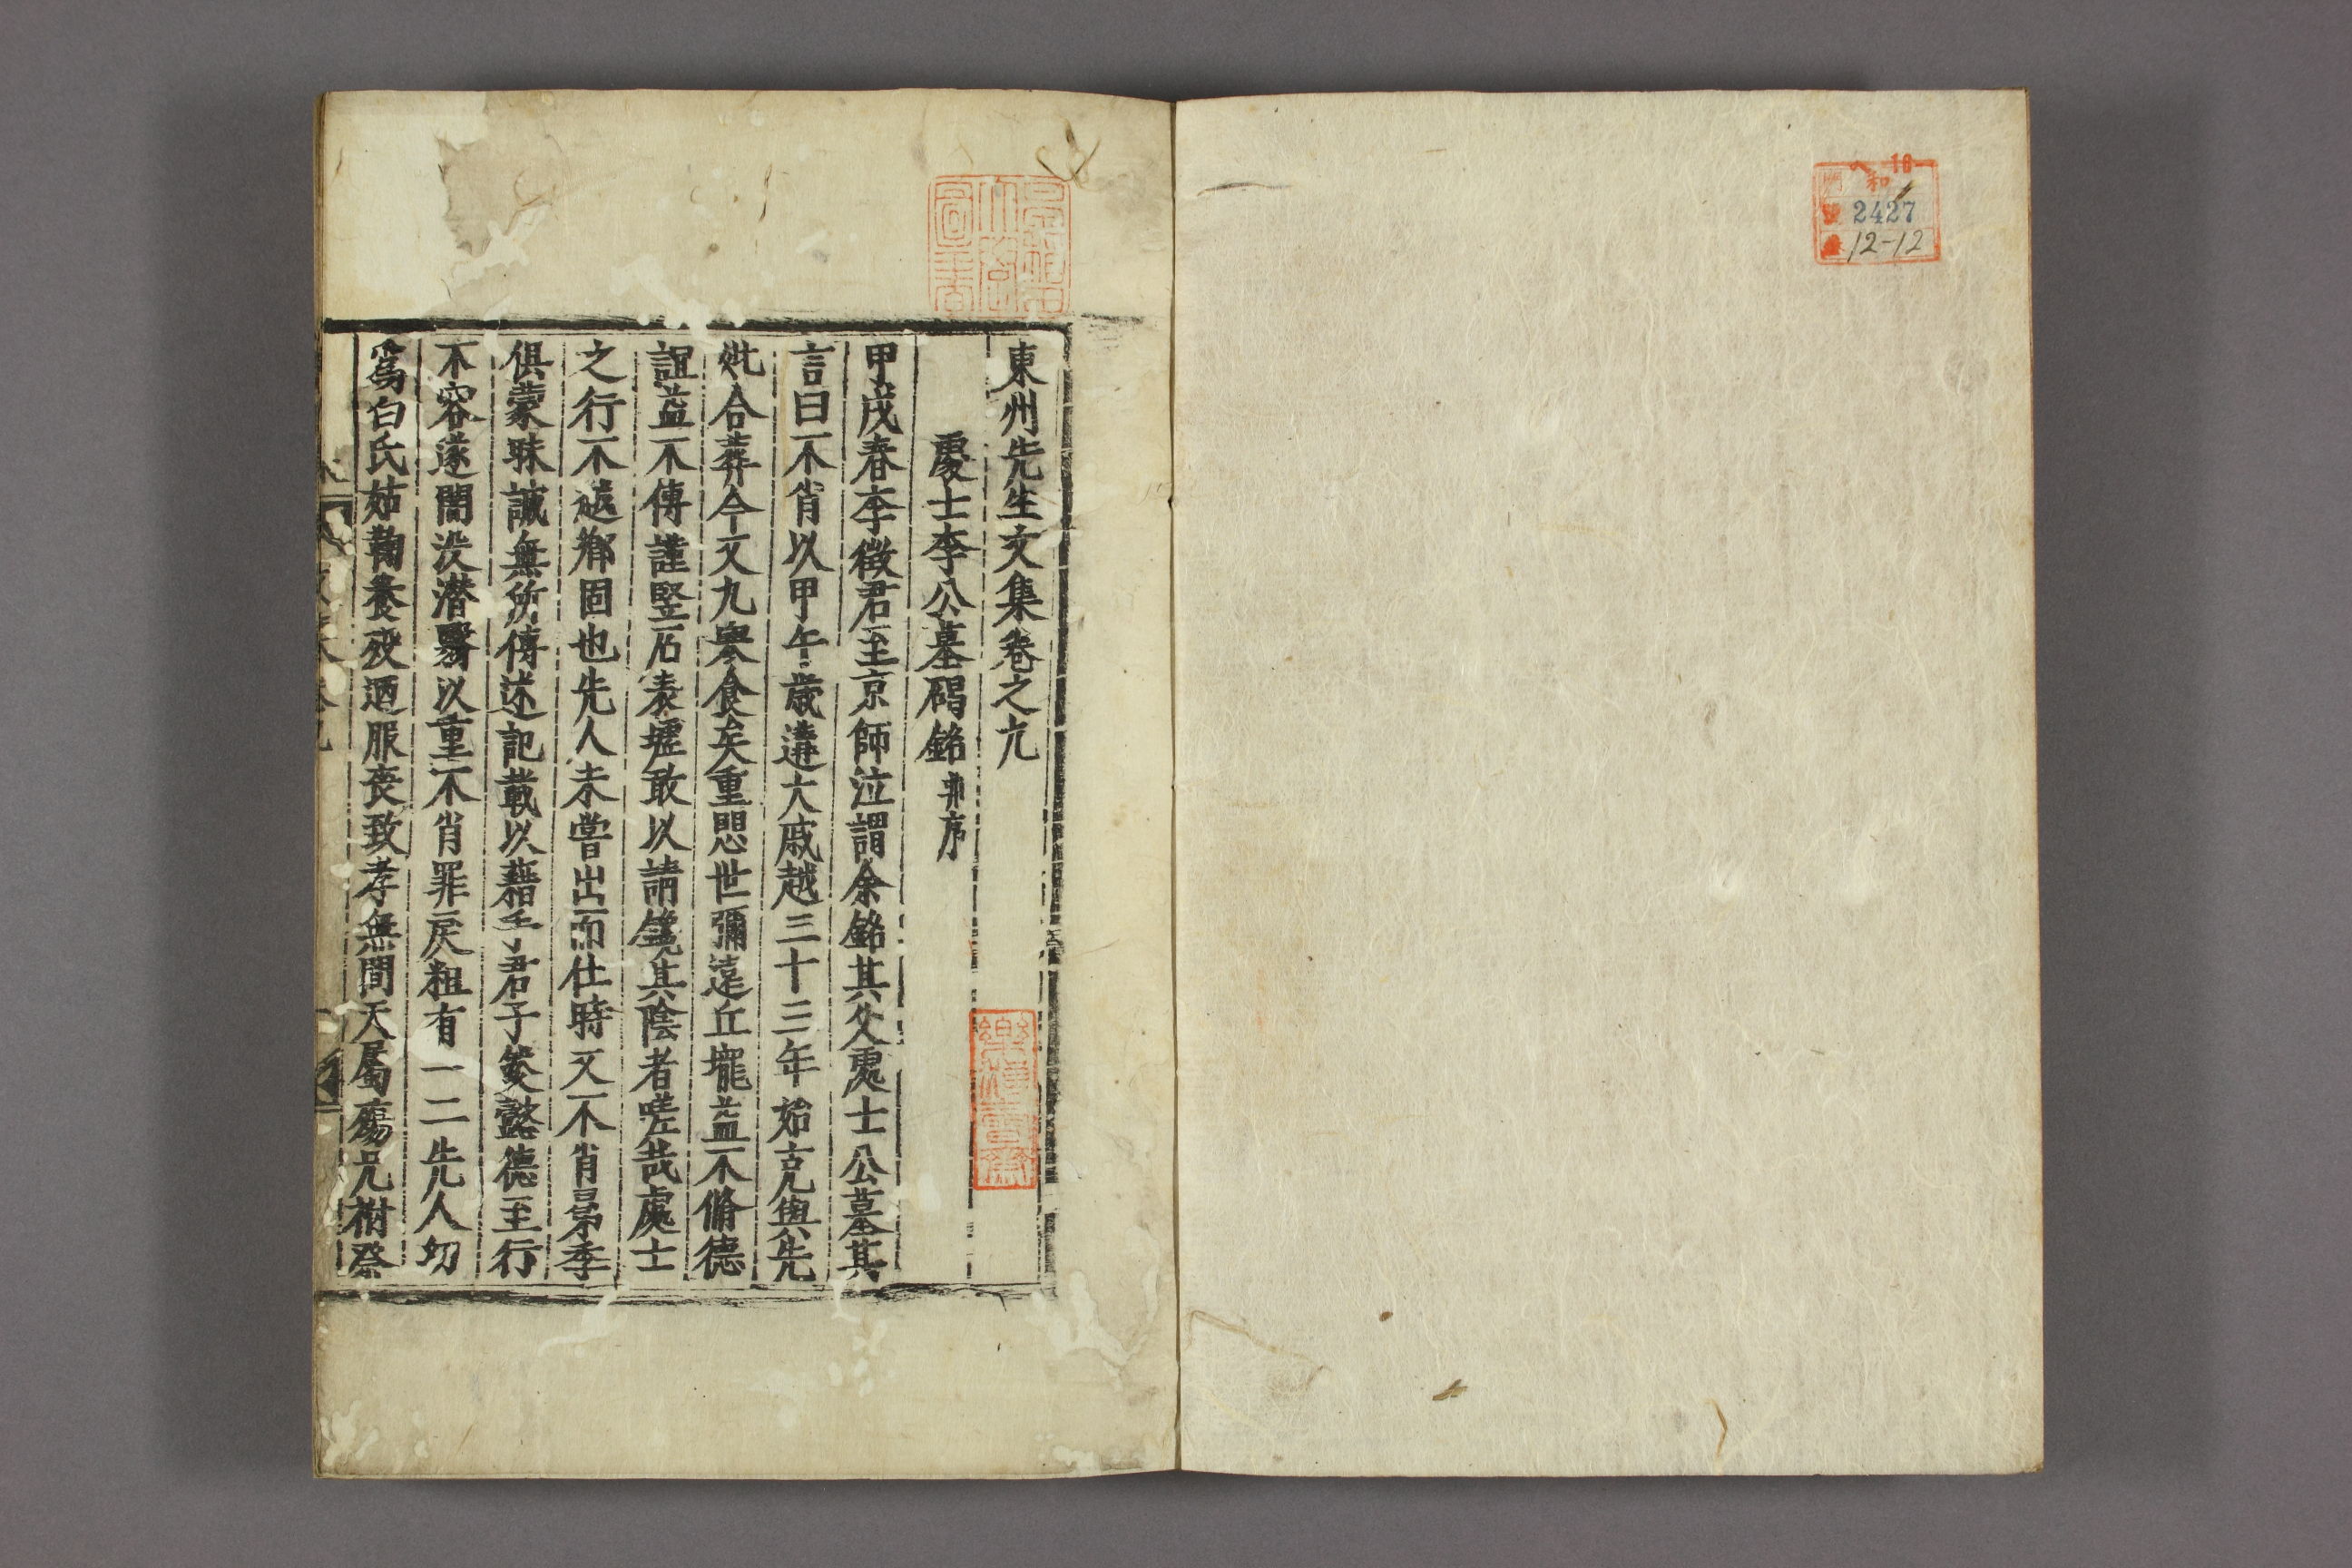 和
2427
12-12
東州先生文集卷之九
處士李公墓碣銘 幷序
甲戌春李徵君至京師泣謂余銘其父處士公墓其
言曰不肖以甲午歲遘大戚越三十三年始克與先
妣合葬今又九寒食矣重愳世彌遠丘壠益不脩德
諠益不傳謹竪石表墟敢以請鑱其陰者嗟哉處士
之行不越鄕固也先人未嘗出而仕時又不肖昴季
俱蒙昧誠無所傳述記載以藉手君子發懿德至行
不容遂闇沒潜翳以重不肖罪戾粗有一二先人㓜
爲白氏姑鞠養歿迺服喪致孝無間天屬殤兄祔祭